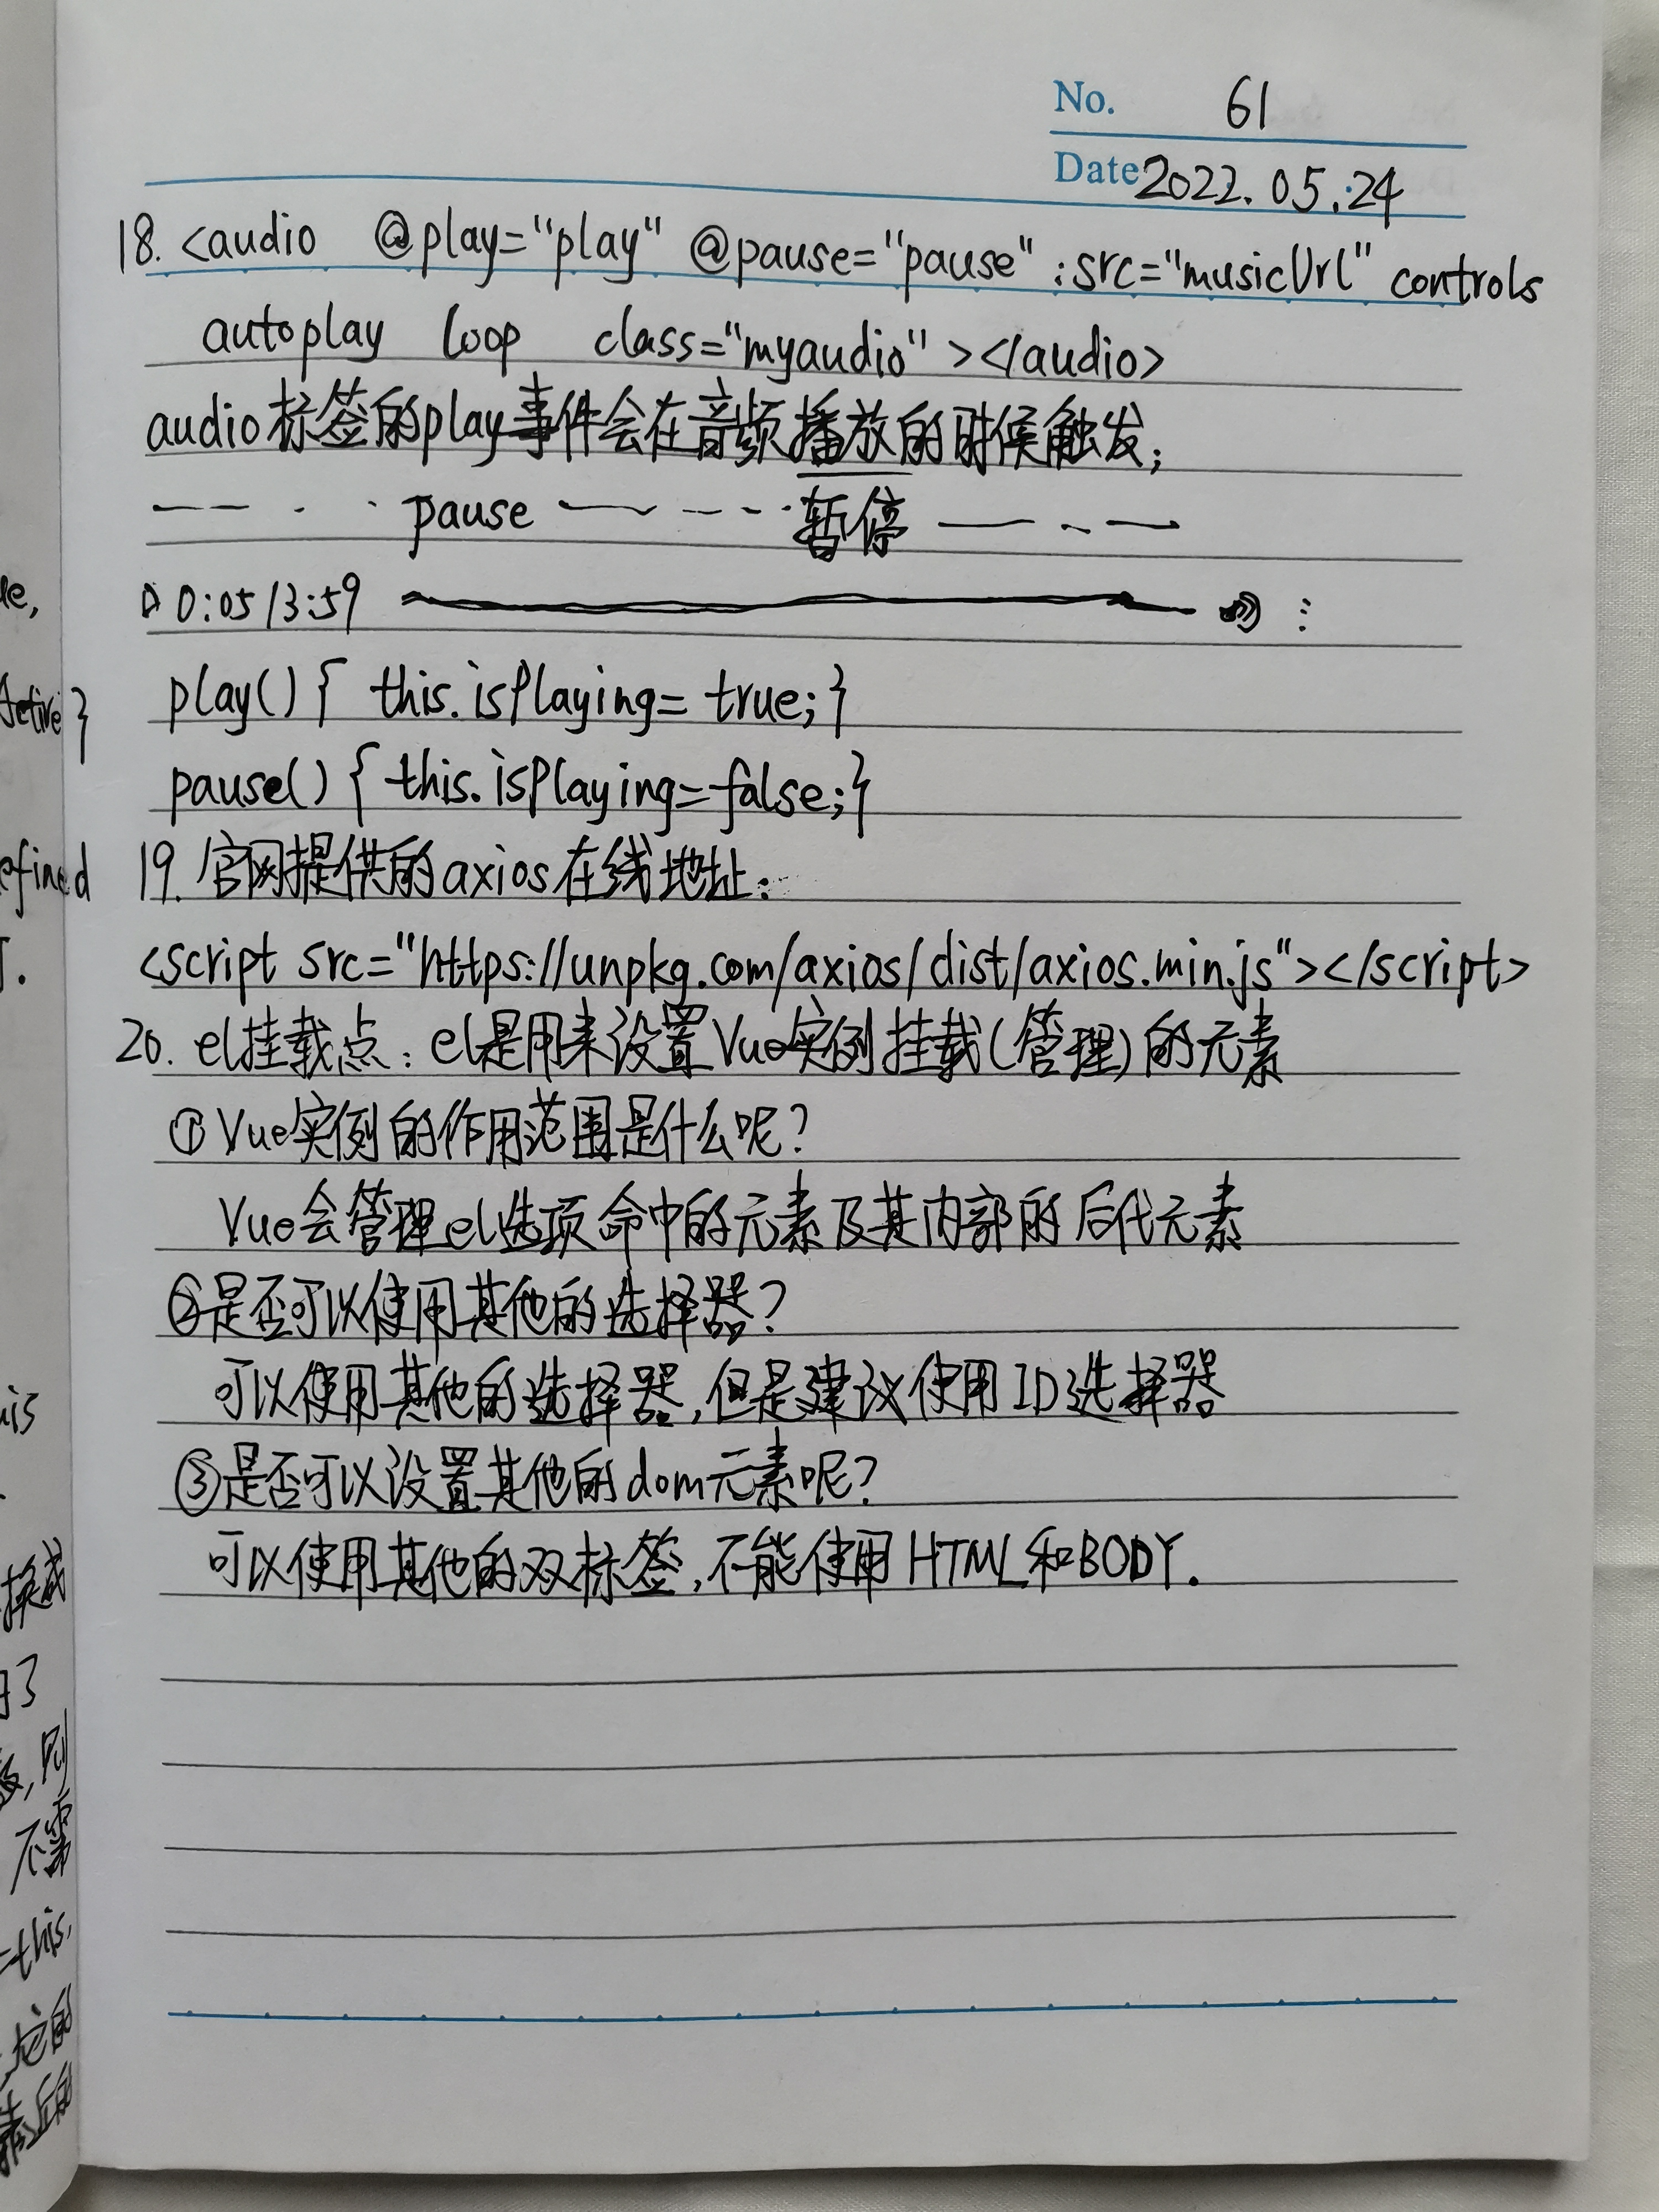 No. 61
Date 2022.05.24
18. <audio @play="play" @pause="pause" :src="musicUrl" controls
autoplay loop class="myaudio"></audio>
audio标签的play事件会在音频播放的时候触发;
pause 暂停
0:05/3:59
play(){ this.isPlaying= true;}
pause() { this.isPlaying=false;}
19. 官网提供的axios在线地址:
<script src="https://unpkg.com/axios/dist/axios.min.js"></script>
20. el挂载点:el是用来设置Vue实例挂载(管理)的元素
①Vue实例的作用范围是什么呢?
Vue会管理el选项命中的元素及其内部的后代元素
②是否可以使用其他的选择器?
可以使用其他的选择器,但是建议使用ID选择器
③是否可以设置其他的dom元素呢?
可以使用其他的双标签,不能使用HTML和BODY.
le,
Active}
efined
uis
换成
了
,则
不需
=this.
的
后的